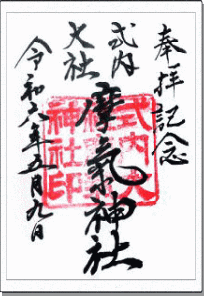 奉拝記念
式内
大社
摩氣神社
令和六年五月九日
式内大
神社印